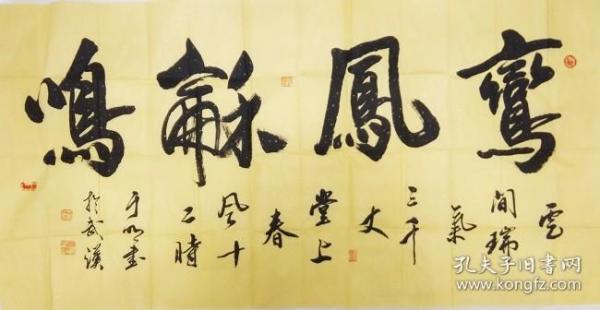 鸞鳳龢鳴
雲
間瑞
氣
三千
丈
堂上
春
風十
二時
于書
於武漢
孔夫子旧书网
www.kongfz.com